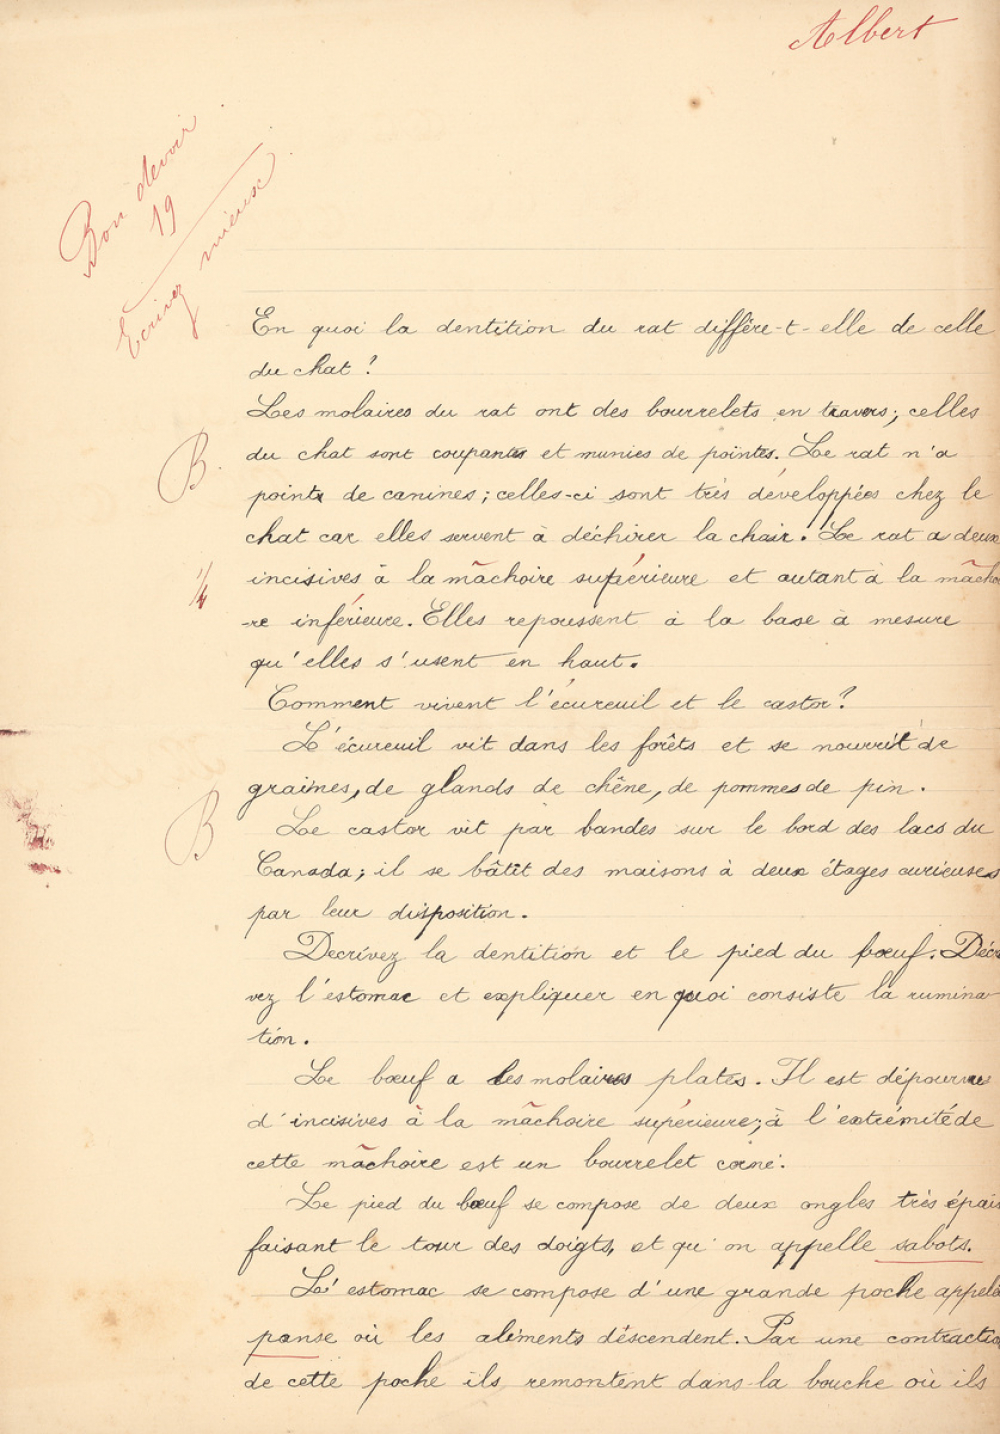 Albert
Bon devoir
19
Ecrivez mieux
En quoi la dentition du rat diffère-t-elle de celle
du chat ?
Les molaires du rat ont des bourrelets en travers; celles
B.
du chat sont coupantes et munies de pointes. Le rat n'a
point de canines; celles-ci sont très développées chez le
chat car elles servent à déchirer la chair. Le rat a deux
incisives à la mâchoire supérieure et autant à la mâchoi
-re inférieure. Elles repoussent à la base à mesure
qu'elles s'usent en haut.
Comment vivent l'écureuil et le castor?
L'écureuil vit dans les forêts et se nourrit de
graines, de glands de chêne, de pommes de pin.
B
Le castor vit par bandes sur le bord des lacs du
Canada; il se bâtit des maisons à deux étages curieuses
par leur disposition.
Decrivez la dentition et le pied du bœuf. Décri
vez l'estomac et expliquer en quoi consiste la rumina
tion.
Le bœuf a les molaires plates. Il est dépourvu
d'incisives à la mâchoire supérieure; à l'extrémité de
cette mâchoire est un bourrelet corné.
Le pied du bœuf se compose de deux ongles très épais
faisant le tour des doigts, et qu'on appelle sabots.
L'estomac se compose d'une grande poche appelé
panse où les aliments descendent. Par une contractio
de cette poche ils remontent dans la bouche où ils